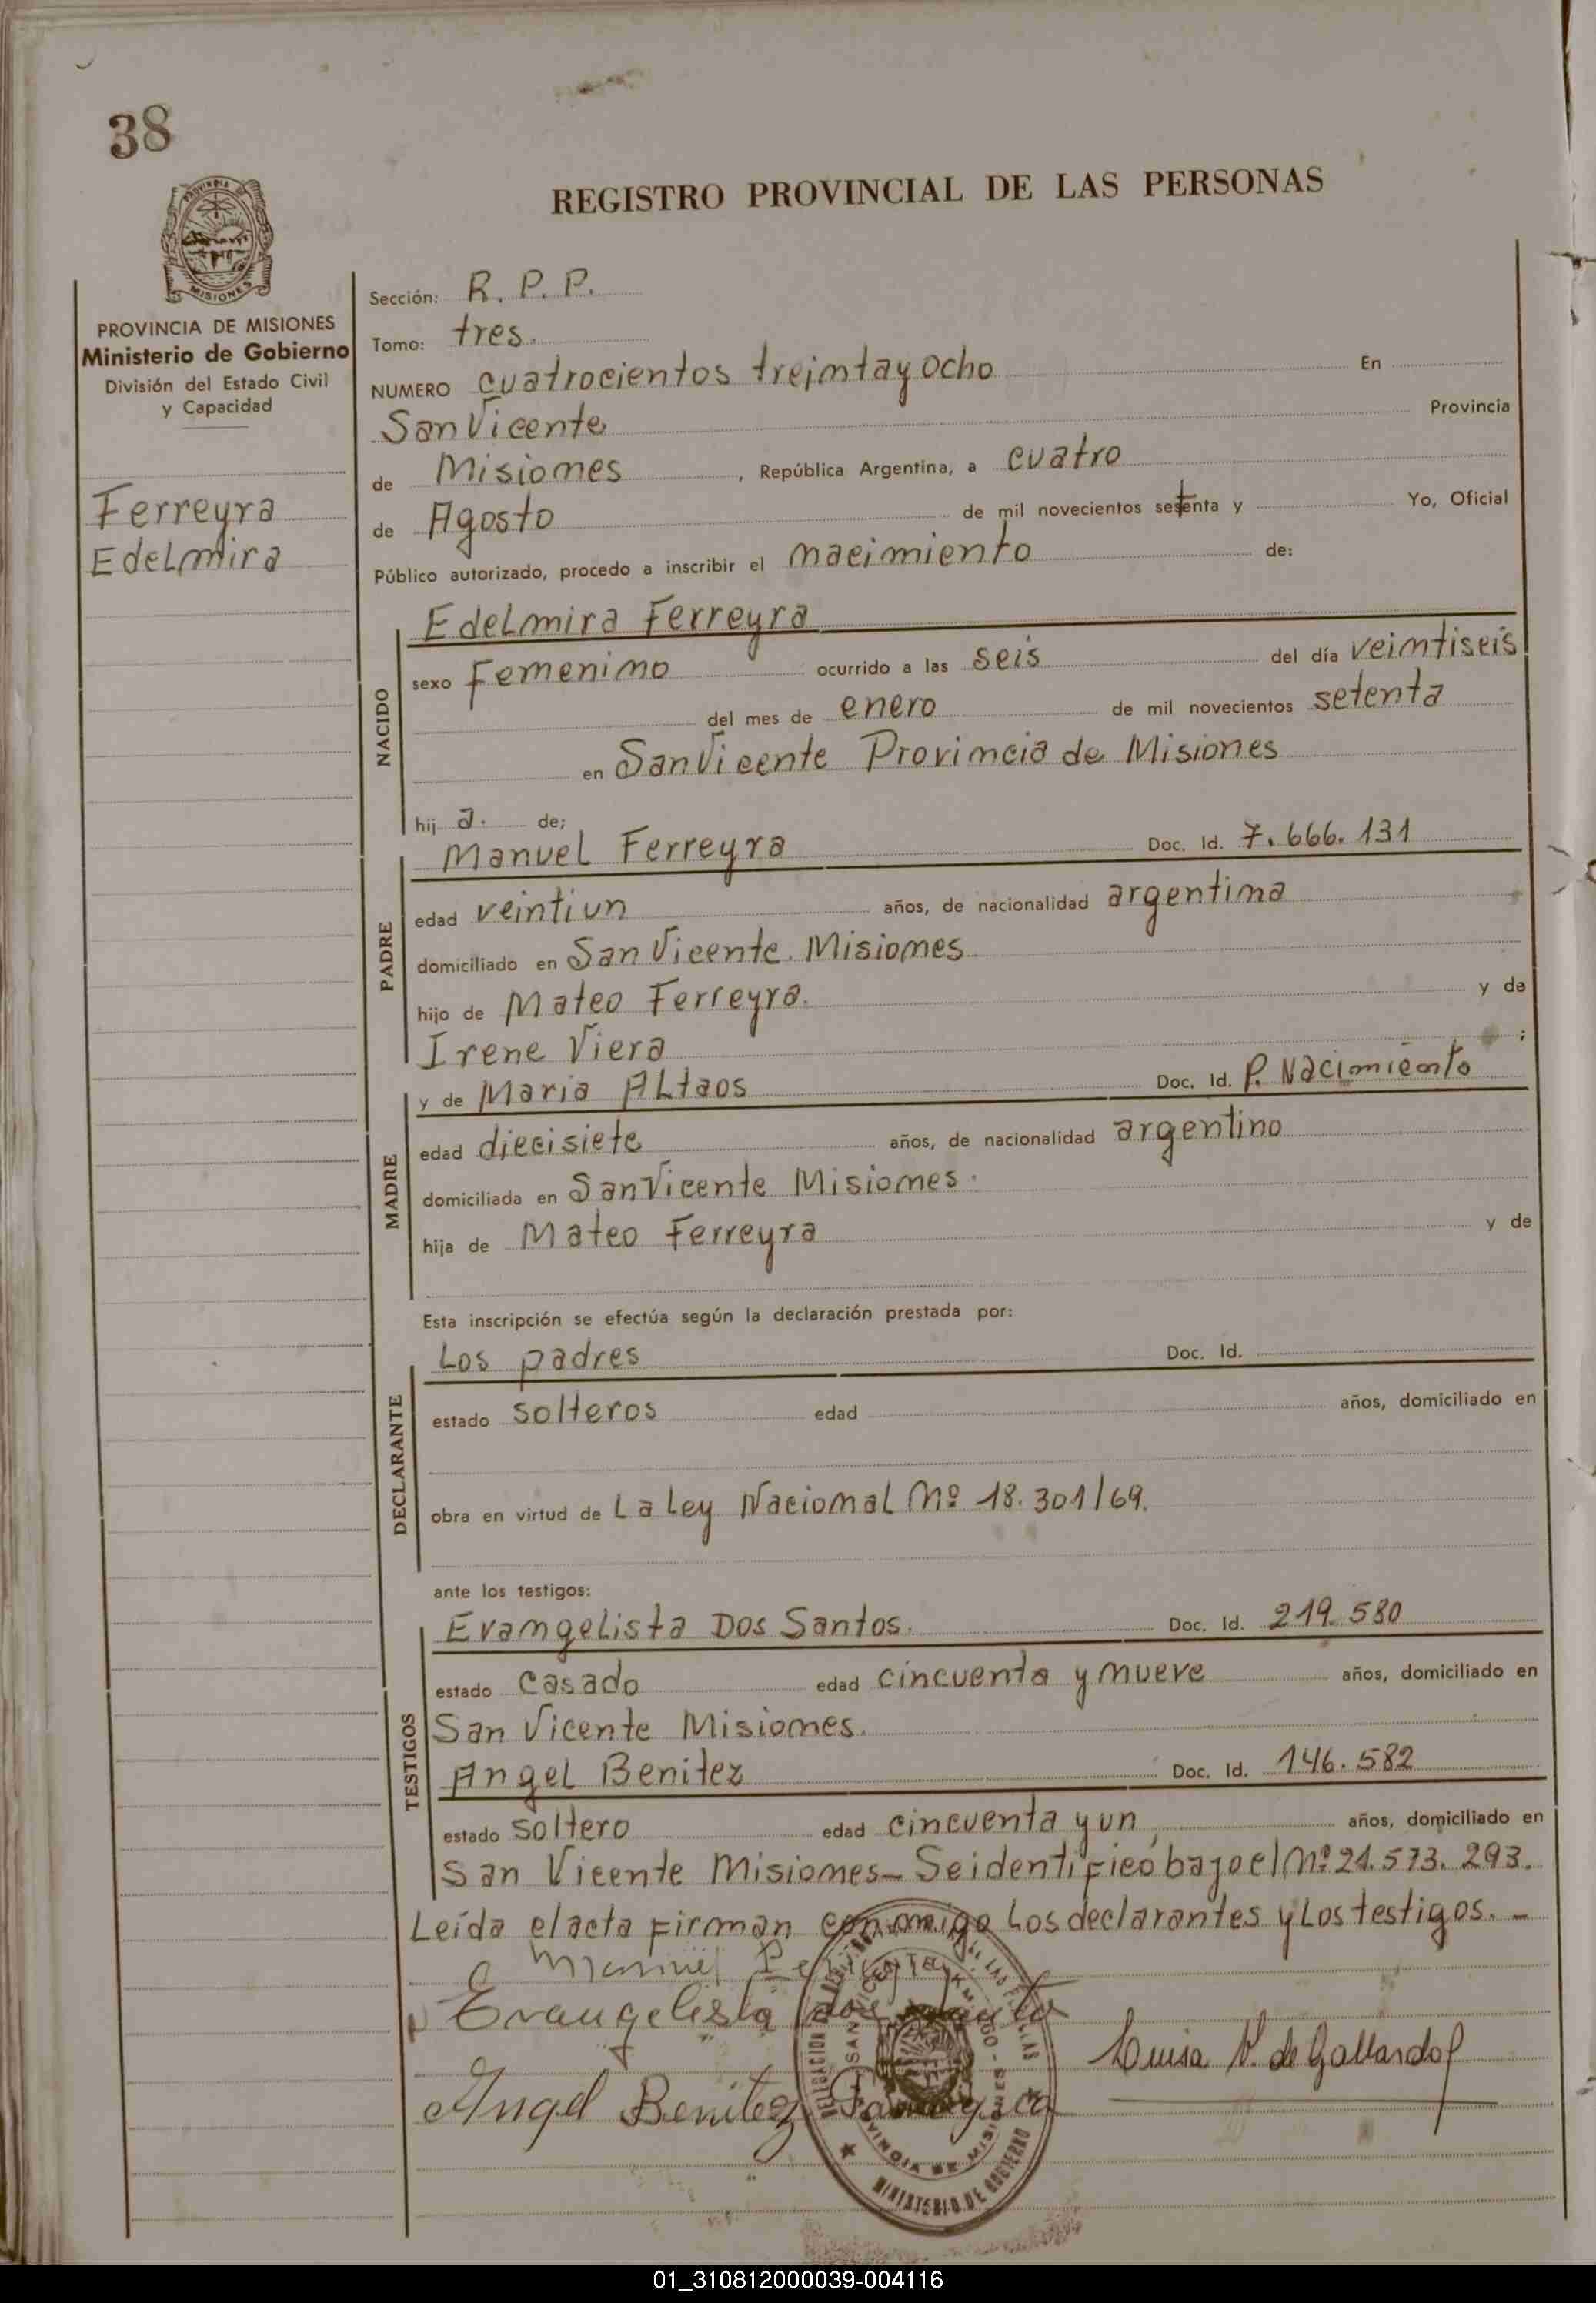 38
REGISTRO PROVINCIAL DE LAS PERSONAS
PROVINCIA DE MISIONES
Ministerio de Gobierno
División del Estado Civil
y Capacidad
Ferreyra
Edelmira
Sección: R. P. P.
Tomo: tres.
NUMERO cuatrocientos treinta y ocho En
San Vicente Provincia
de Misiones, República Argentina, a cuatro
de Agosto de mil novecientos setenta y Yo, Oficial
Público autorizado, procedo a inscribir el nacimiento de:
NACIDO
Edelmira Ferreyra
sexo Femenino ocurrido a las seis del día veintiseis
del mes de enero de mil novecientos setenta
en San Vicente Provincia de Misiones
hij a. de;
PADRE
Manuel Ferreyra Doc. Id. 7.666.131
edad veintiun años, de nacionalidad argentina
domiciliado en San Vicente. Misiones
hijo de Mateo Ferreyra. y de
Irene Viera ;
MADRE
y de Maria ALtaos Doc. Id. P. Nacimiento
edad diecisiete años, de nacionalidad argentino
domiciliada en San Vicente Misiones.
hija de Mateo Ferreyra y de
Esta inscripción se efectúa según la declaración prestada por:
DECLARANTE
Los padres Doc. Id.
estado solteros edad años, domiciliado en
obra en virtud de La Ley Nacional Nº 18.301/69.
ante los testigos:
TESTIGOS
Evangelista Dos Santos. Doc. Id. 219.580
estado casado edad cincuenta y nueve años, domiciliado en
San Vicente Misiones.
Angel Benitez Doc. Id. 146.582
estado soltero edad cincuenta y un, años, domiciliado en
San Vicente Misiones- Se identificó bajo el Nº 21.573.293.
Leída el acta firman conmigo los declarantes y Los testigos. -
Manuel
Evangelista dos
Angel Benitez
Luisa V. de Gallardo
PROVINCIA DE MISIONES
MINISTERIO DE GOBIERNO
01_310812000039-004116